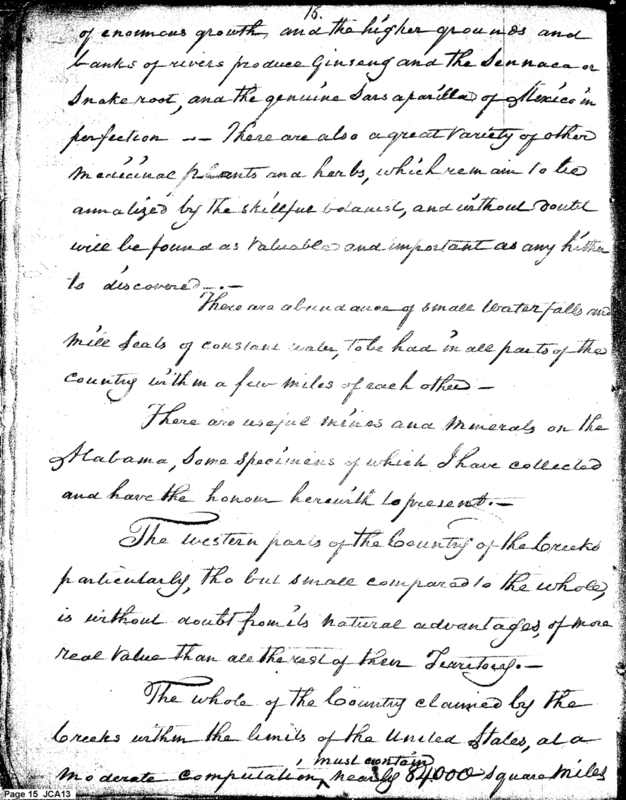 15.
of enormous growth, and the higher grounds and
banks of rivers produce Ginseng and the Sennaca or
Snake root, and the genuine Sarsaparilla of Mexico in
perfection — There are also a great Variety of other
medicinal plants and herbs, which remain to be
annalized by the skillful botanist, and without doubt
will be found as Valuable and important as any hither
to discovered —.—
There are abundance of small Water falls and
Mill Seats of constant water, to be had in all parts of the
Country within a few miles of each other —
There are useful mines and minerals on the
Alabama, Some Specimens of which I have collected
and have the honour herewith to present.—
The Western parts of the Country of the Creeks
particularly, tho but small compared to the whole,
is without doubt from its natural advantages, of more
real Value than all the rest of their Territory.—
The whole of the Country claimed by the
Creeks within the limits of the United States, at a
must contain
moderate computation, ^ nearly 84000 square miles
Page 15 JCA13